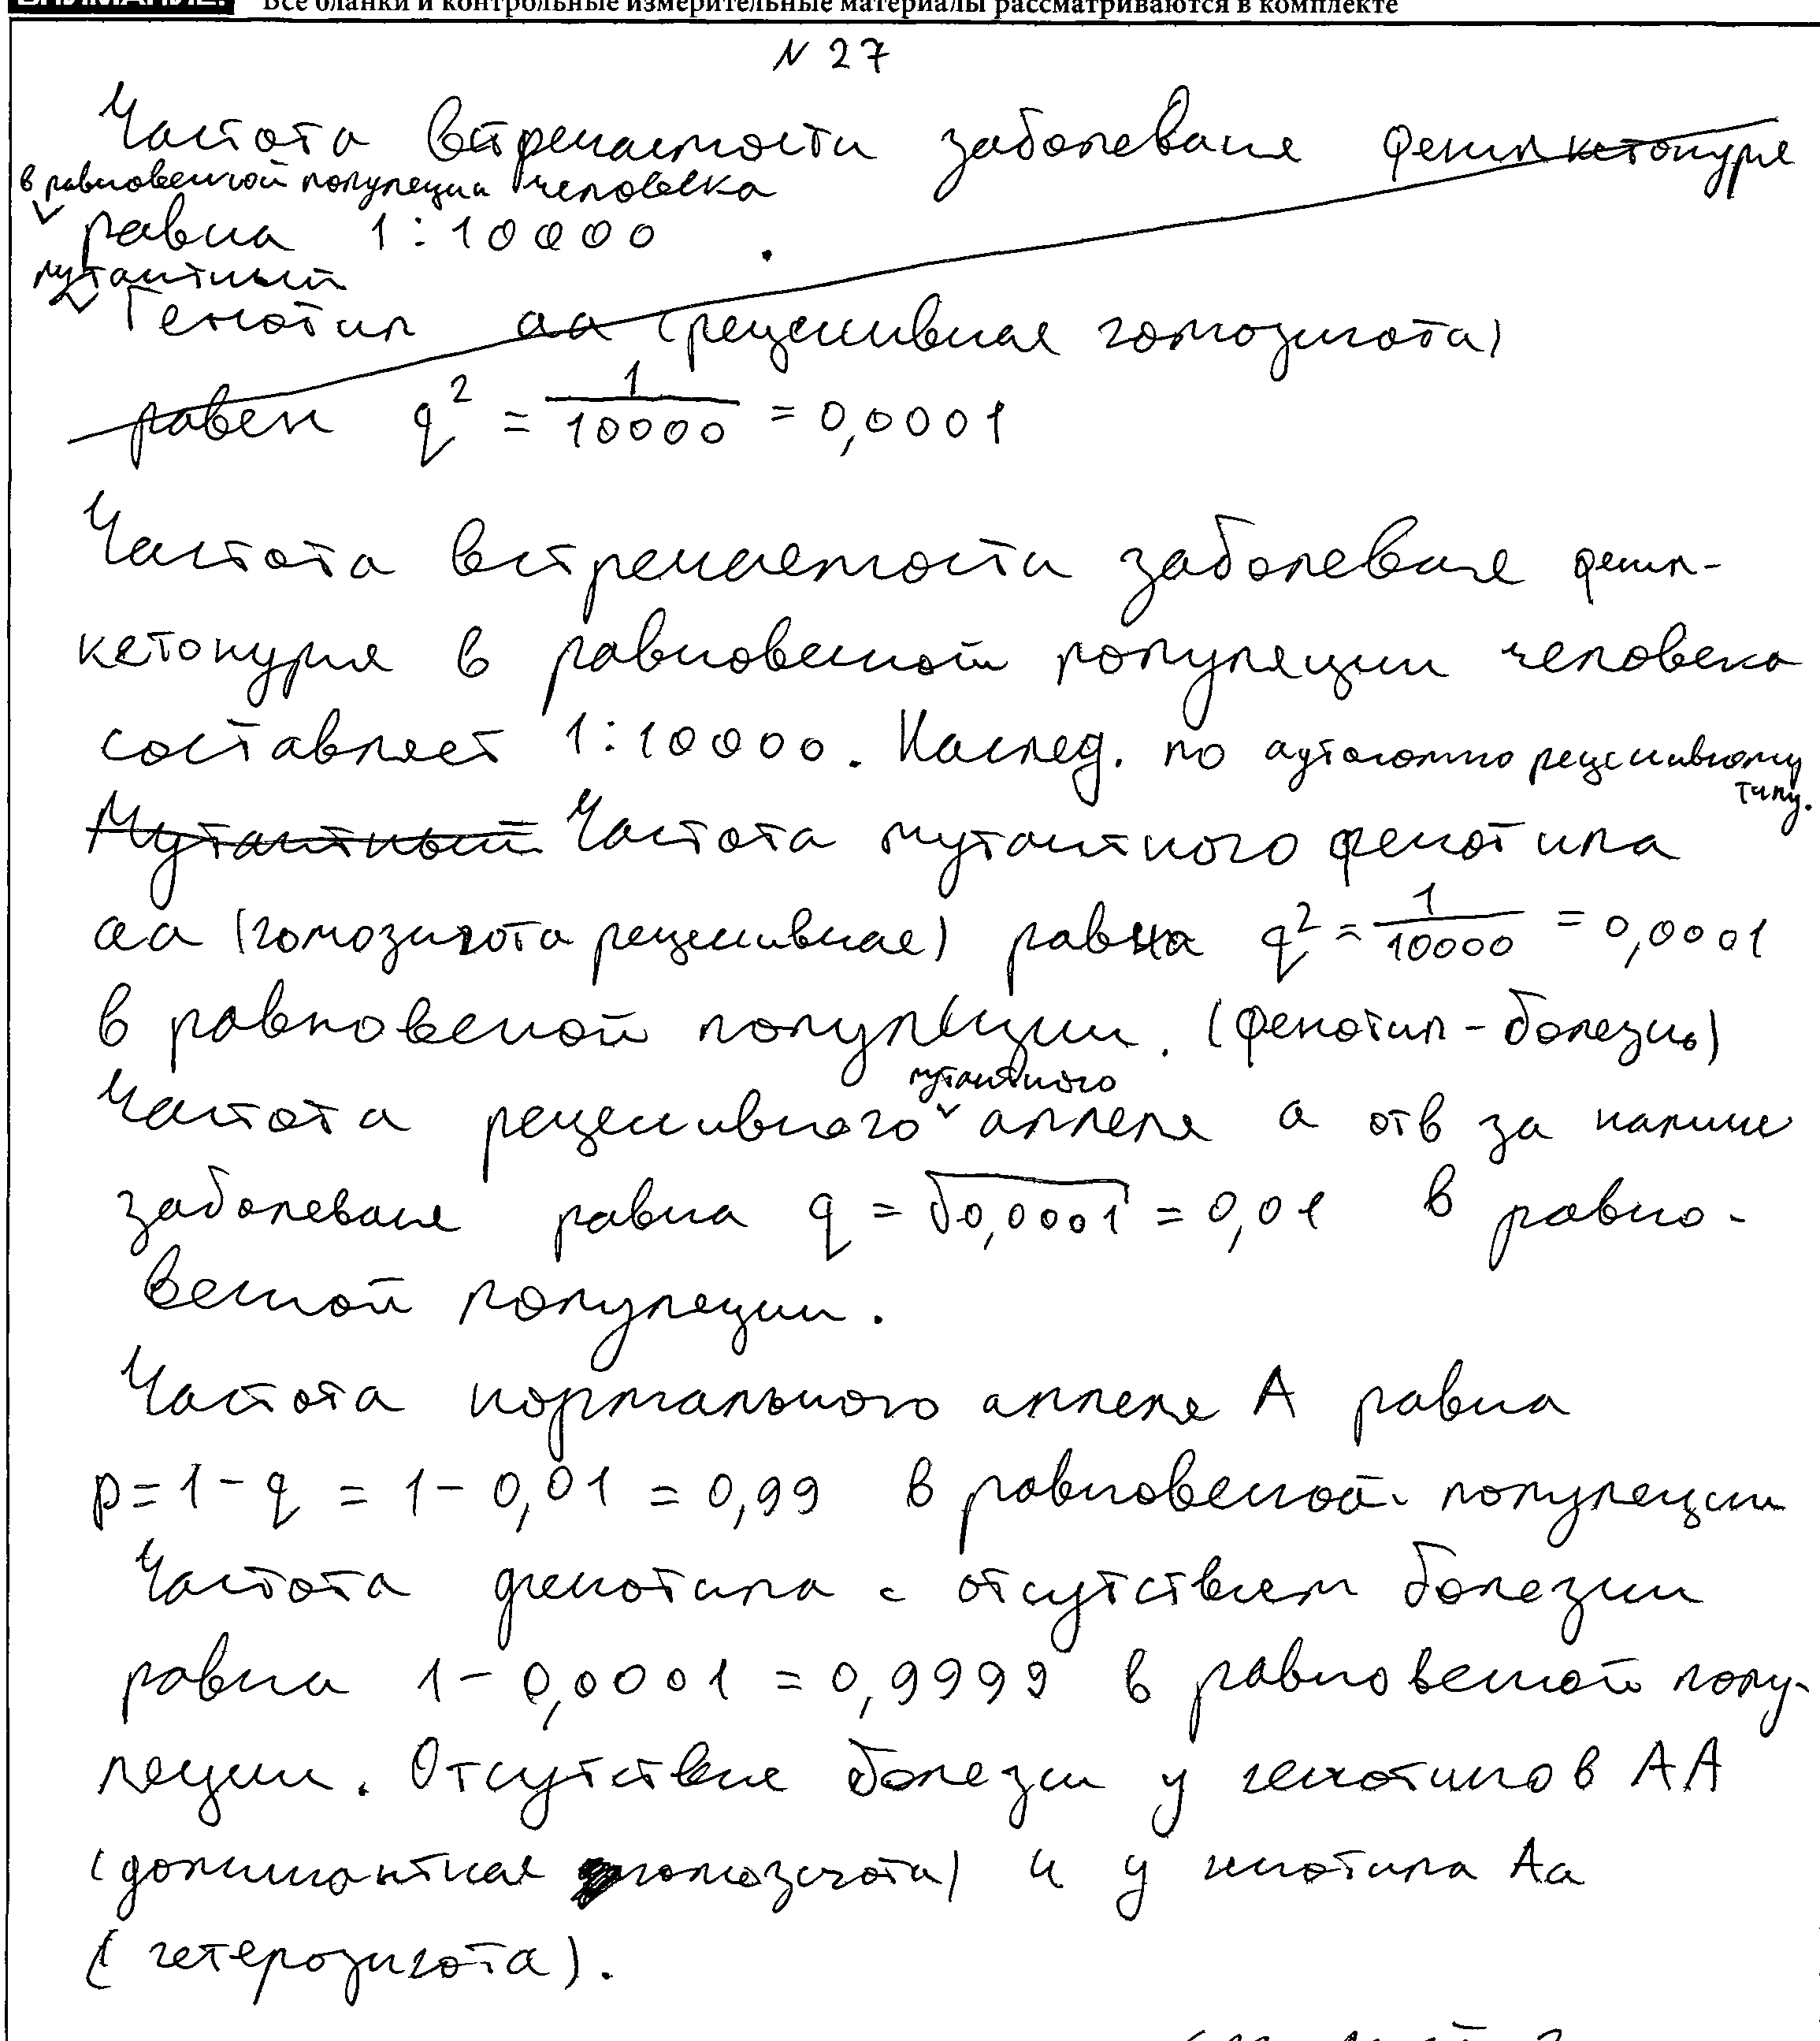 Все бланки и контрольные измерительные материалы рассматриваются в комплекте
N 27
Частота встречаемости заболевания фенилкетонурия
в равновесной популяции человека
равна 1:10000 .
мутантный
Генотип аа (рецессивная гомозигота)
равен q² = 1/10000 = 0,0001
Частота встречаемости заболевания фенил-
кетонурия в равновесной популяции человека
составляет 1:10000. Наслед. по аутосомно рецессивному
типу.
Мутантный Частота мутантного фенотипа
аа (гомозигота рецессивная) равна q² = 1/10000 = 0,0001
в равновесной популяции. (фенотип - болезнь)
мутантного
Частота рецессивного аллеля а отв за наличие
заболевания равна q = √0,0001 = 0,01 в равно-
весной популяции.
Частота нормального аллеля А равна
p = 1 - q = 1 - 0,01 = 0,99 в равновесной популяции
Частота фенотипа с отсутствием болезни
равна 1 - 0,0001 = 0,9999 в равновесной попу-
ляции. Отсутствие болезни у генотипов АА
(доминантная гомозигота) и у генотипа Аа
(гетерозигота).